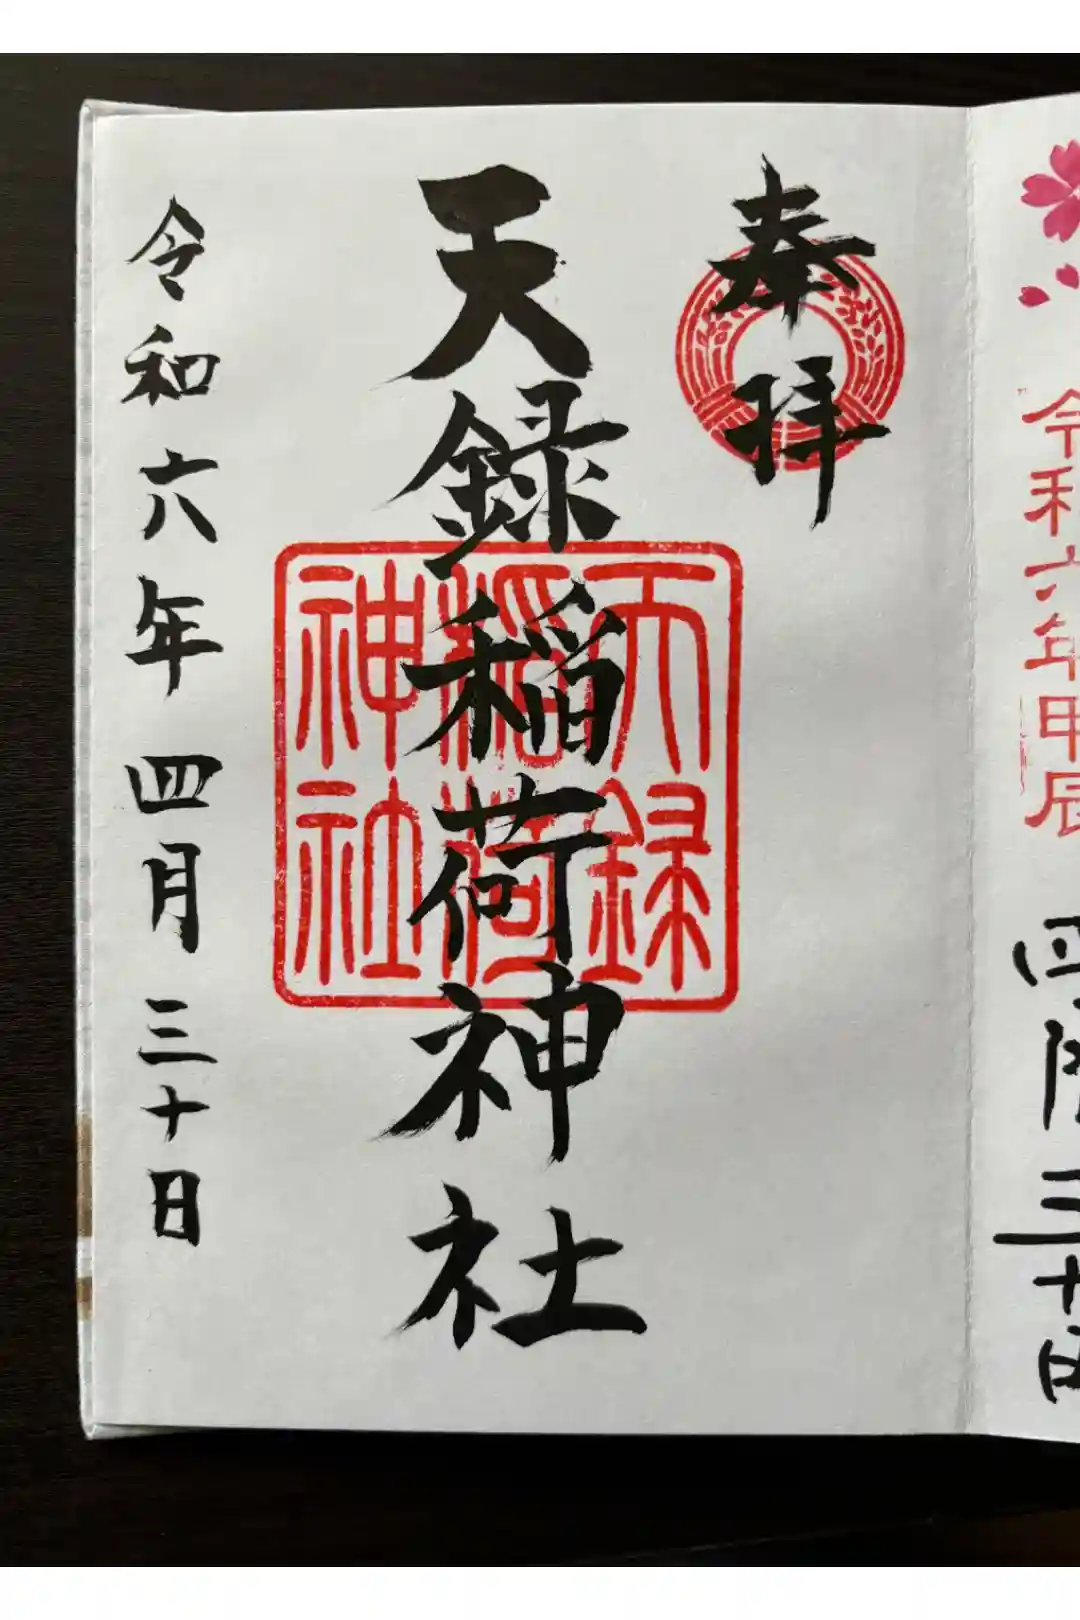 令和六年甲辰
四月三十日
奉拝
天録稲荷神社
天録稲荷神社
令和六年四月三十日